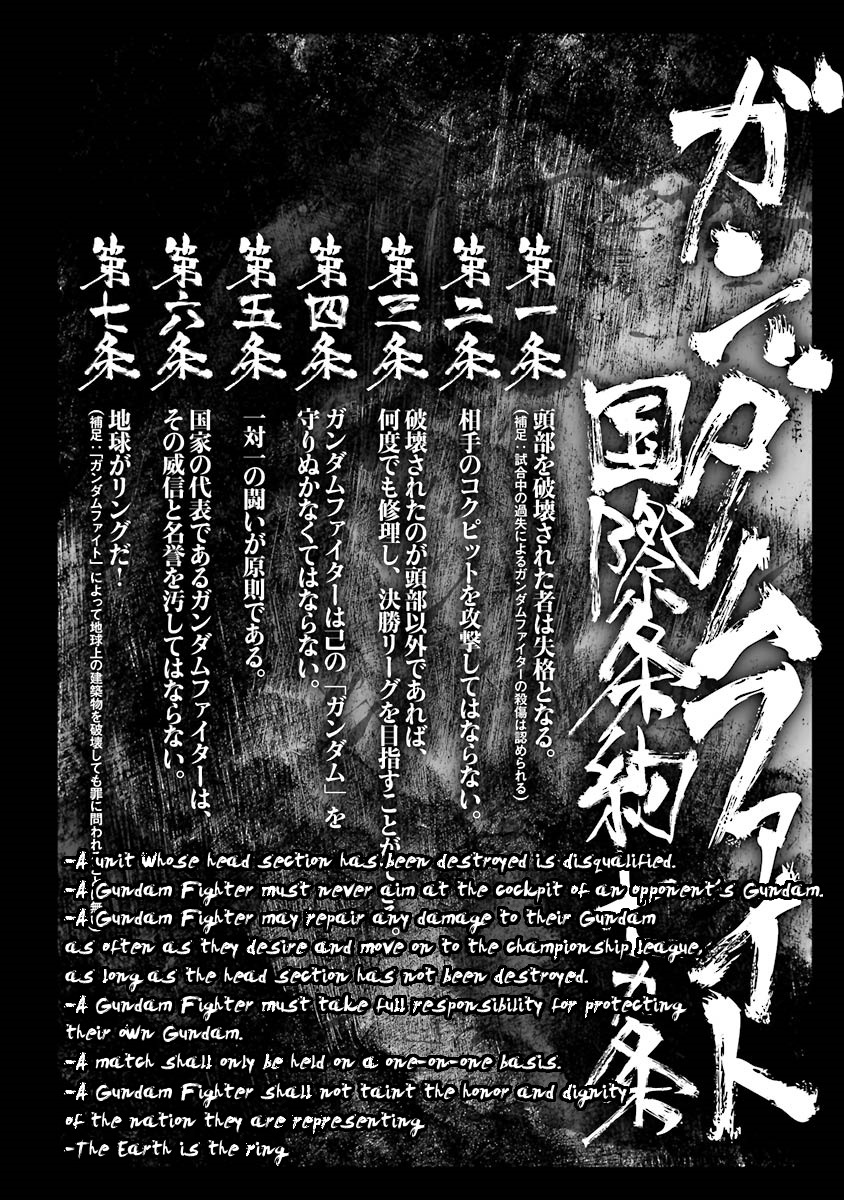 ガンダムファイト
国際条約七カ条
第一条
頭部を破壊された者は失格となる。
(補足:試合中の過失によるガンダムファイターの殺傷は認められる)
第二条
相手のコクピットを攻撃してはならない。
第三条
破壊されたのが頭部以外であれば、
何度でも修理し、決勝リーグを目指すことが
第四条
ガンダムファイターは己の「ガンダム」を
守りぬかなくてはならない。
第五条
一対一の闘いが原則である。
第六条
国家の代表であるガンダムファイターは、
その威信と名誉を汚してはならない。
第七条
地球がリングだ!
(補足:「ガンダムファイト」によって地球上の建築物を破壊しても罪に問われ
-A unit whose head section has been destroyed is disqualified.
-A Gundam Fighter must never aim at the cockpit of an opponent's Gundam.
-A Gundam Fighter may repair any damage to their Gundam
as often as they desire and move on to the championship league,
as long as the head section has not been destroyed.
-A Gundam Fighter must take full responsibility for protecting
their own Gundam.
-A match shall only be held on a one-on-one basis.
-A Gundam Fighter shall not taint the honor and dignity
of the nation they are representing
-The Earth is the ring